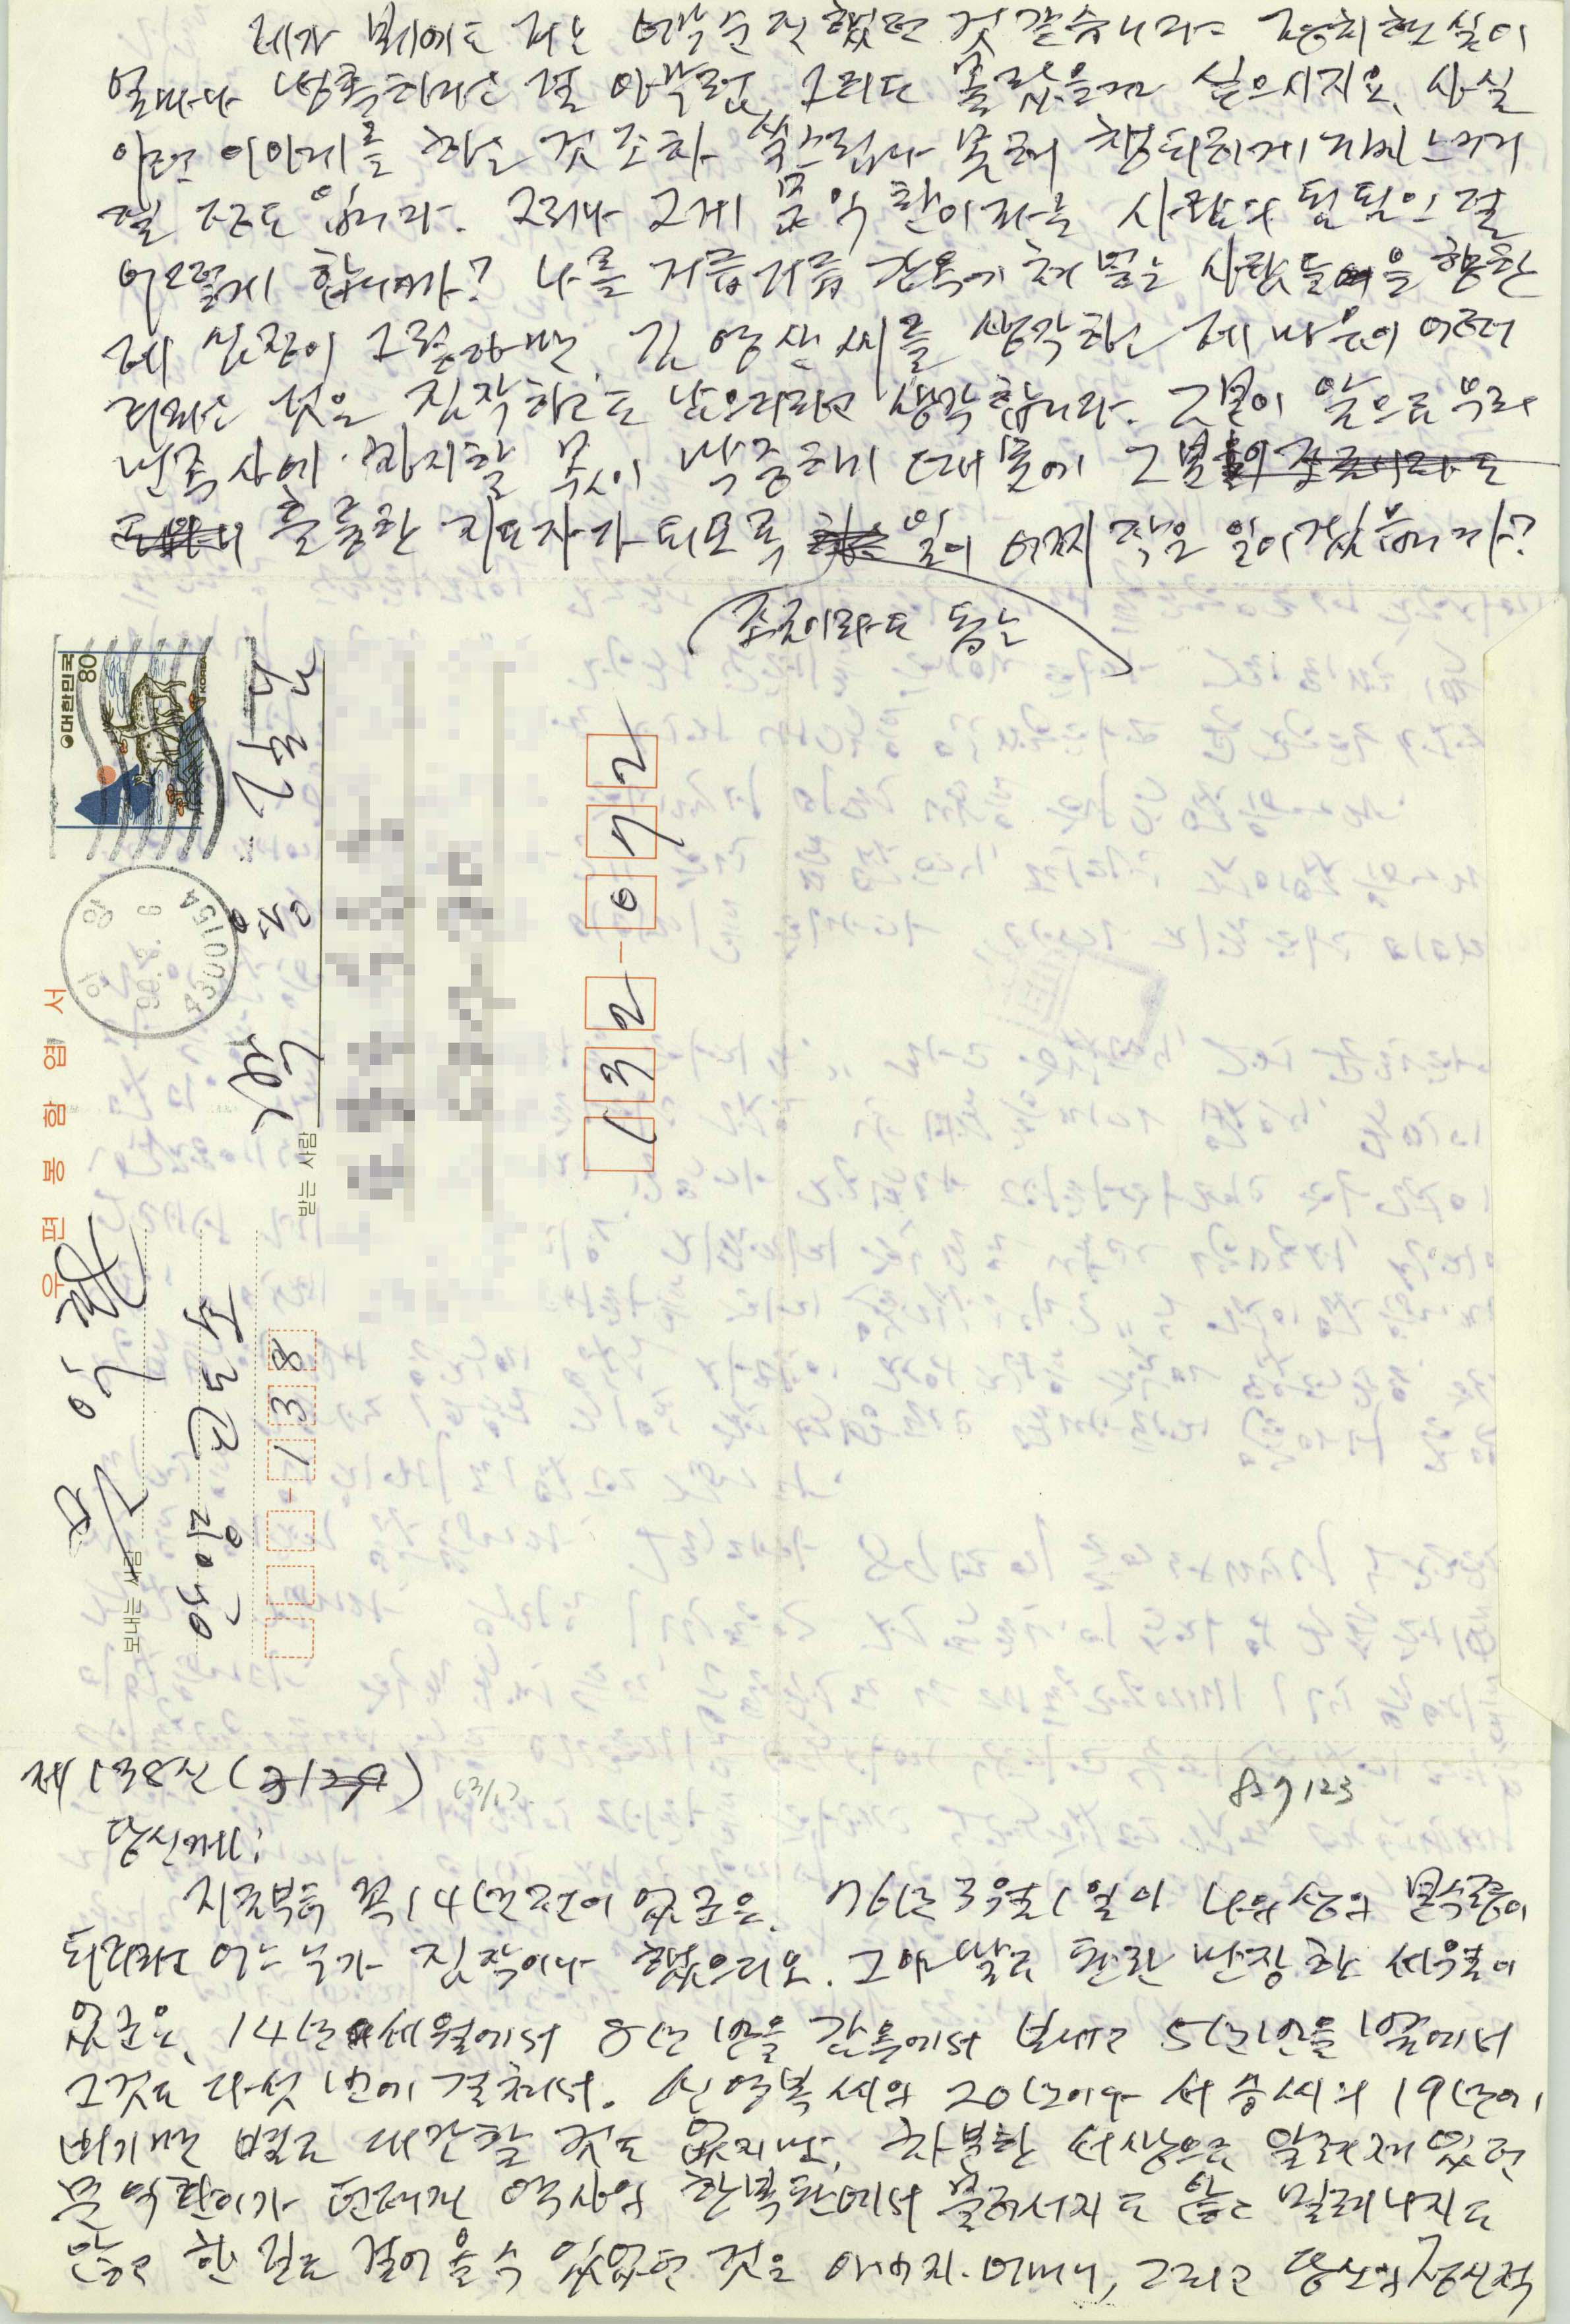 제가 보기에도 저는 너무 순진했던 것 같습니다. 정치현실이
얼마나 냉혹하다는 걸 아직도 그리도 몰랐을까 싶으시지요. 사실
이런 이야기를 하는 것조차 쑥스럽다 못해 창피하게까지 느껴
질 정도입니다. 그러나 그게 문익환이라는 사람의 됨됨인 걸
어떻게 합니까? 나를 거듭거듭 감옥에 처넣는 사람들을 향한
제 심정이 그렇다면, 김영삼씨를 생각하는 제 마음이 어떠
하리라는 것은 짐작하고도 남으리라고 생각합니다. 그분이 앞으로 우리
민족사에 차지할 몫이 막중하기 때문에 그분이
훌륭한 지도자가 되도록 일이 어찌 작은 일이겠습니까?
조금이라도 돕는
대한민국
80
KOREA
우편봉함엽서
받는 사람
박용길
132-072
보내는 사람
문익환
안양교도소
138
제138신 (3/1)
827123
당신께:
지금부터 꼭 14년 전이었군요. 76년 3월 1일이 나의 생의 분수령이
되리라고 어느 누가 짐작이나 했으리오. 그야말로 파란만장한 세월이
었군요. 14년 세월에서 8년 반을 감옥에서 보내고 5년 반을 밖에서
그것도 다섯 번에 걸쳐서. 신영복씨의 20년이나 서승씨의 19년에
비기면 별로 대단할 것도 없지만, 차분한 서생으로 알려져 있던
문익환이가 던져진 역사의 한복판에서 물러서지도 않고 밀려나지도
않고 한 길로 걸어올 수 있었던 것은 아버지·어머니, 그리고 당신의 정신적